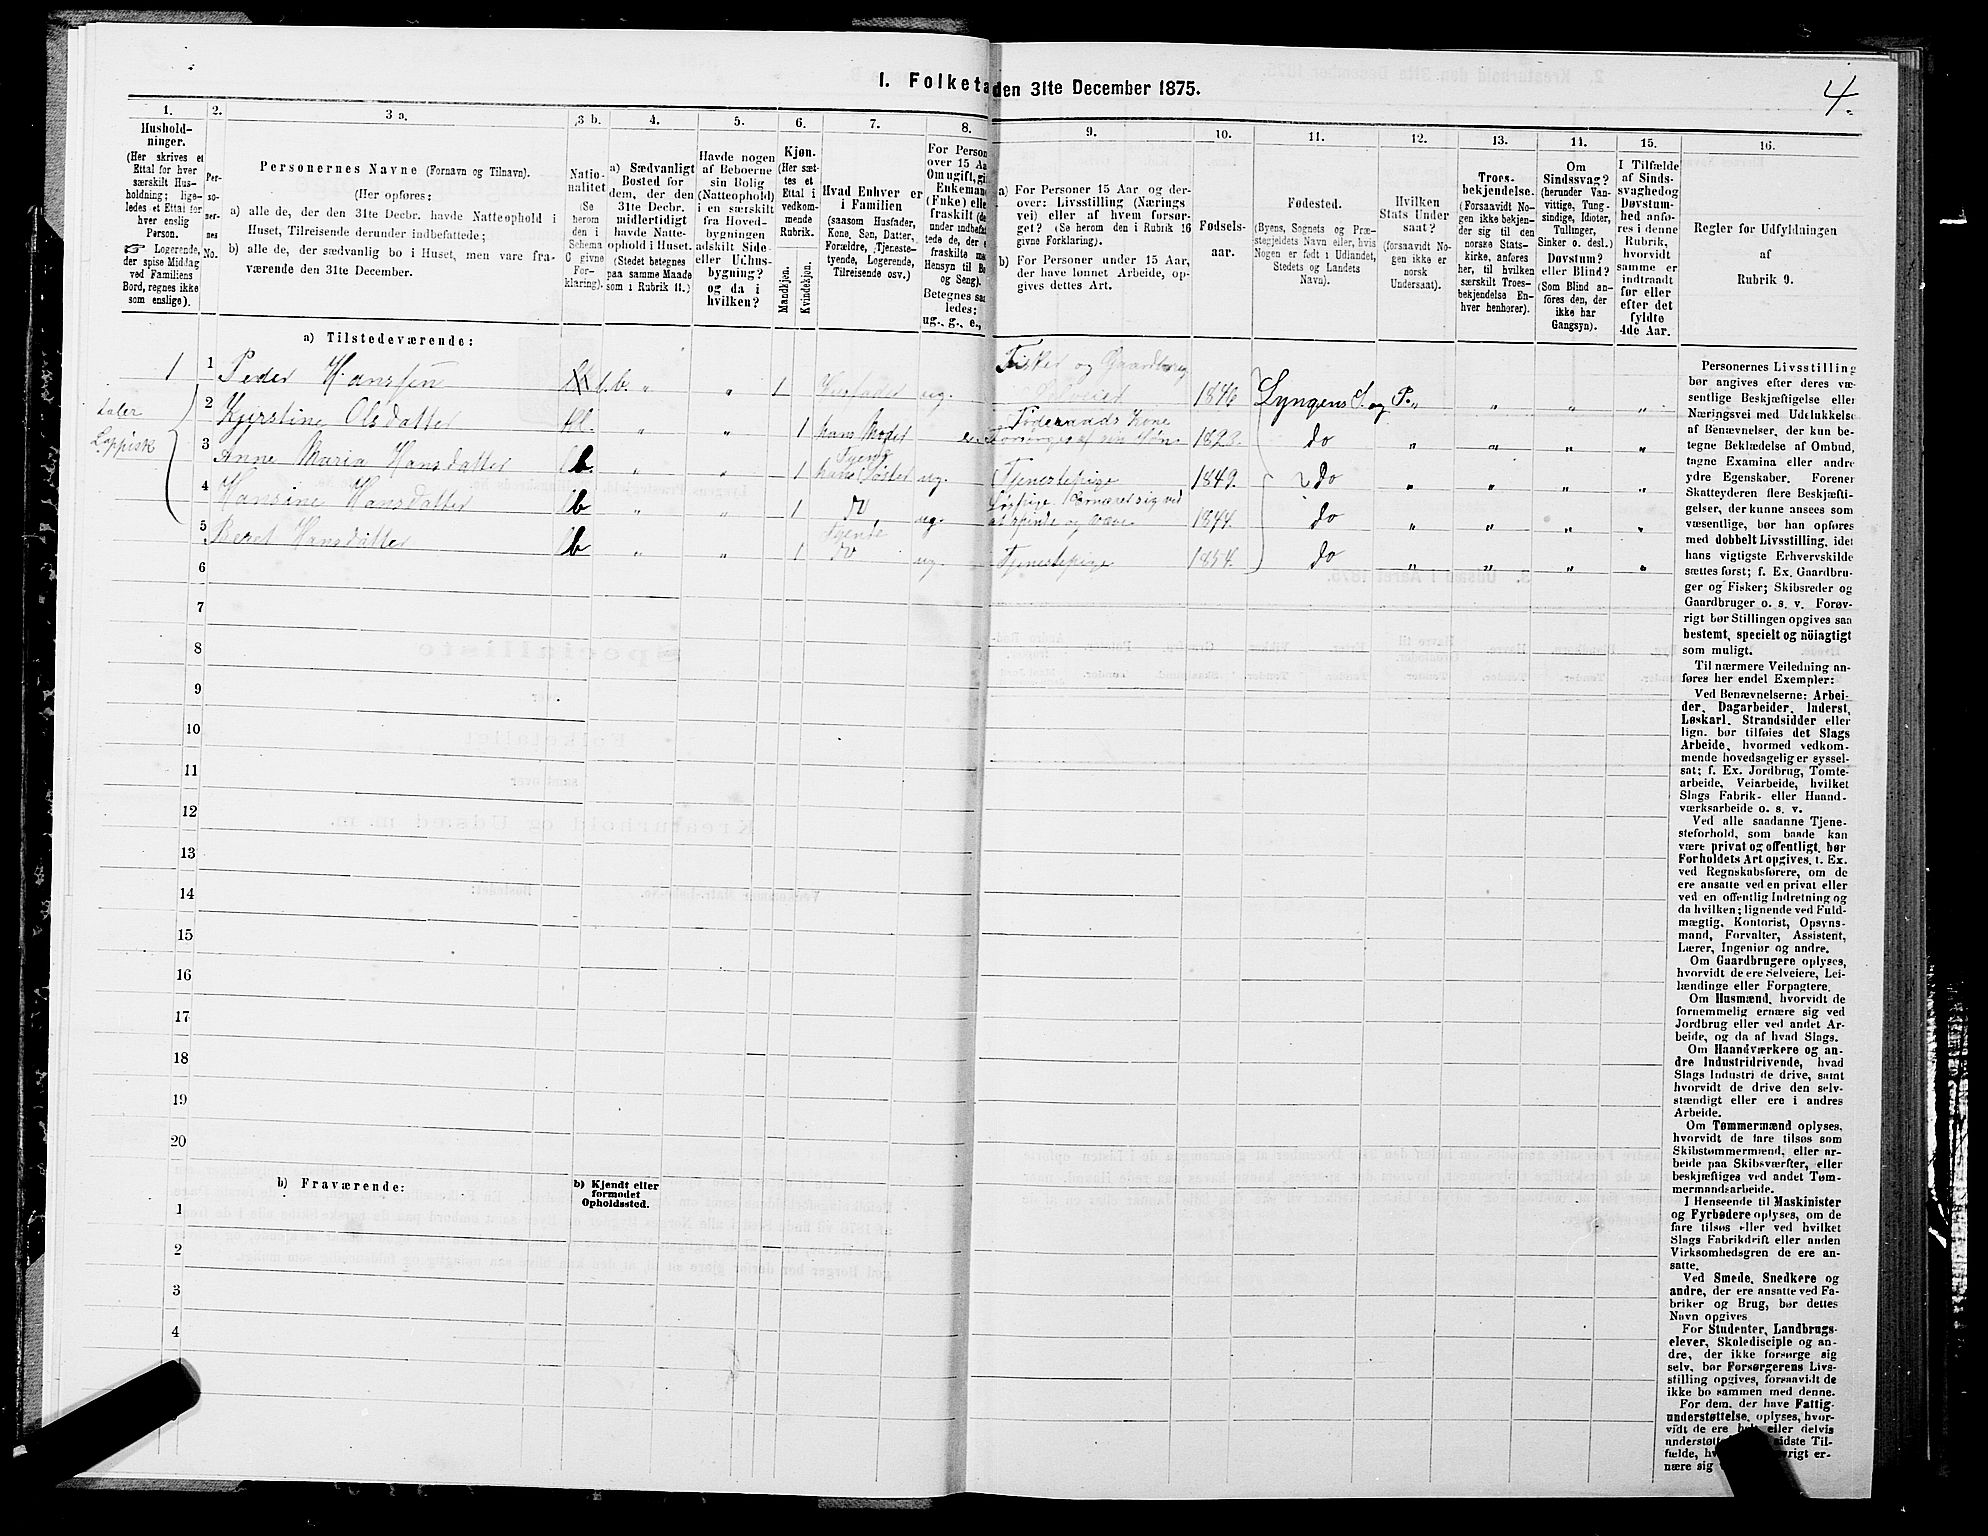 4.
I. Folketa den 31te December 1875.
1.
Hushold-
ninger.
(Her skrives et
Ettal for hver
særskilt Hus-
holdning; lige-
ledes et Ettal for
hver enslig
Person.
☞ Logerende,
der spise Middag
ved Familiens
Bord, regnes ikke
som enslige).
2.
Per-
so-
ner-
nes
No.
3 a.
Personernes Navne (Fornavn og Tilnavn).
(Her opføres:
a) alle de, der den 31te Decbr. havde Natteophold i
Huset, Tilreisende derunder indbefattede;
b) alle de, der sædvanlig bo i Huset, men vare fra-
værende den 31te December.
3 b.
Natio-
nalitet
(Se
herom
den i
Schema
C givne
For-
klaring).
4.
a) Sædvanligt
Bosted for
dem, der den
31te Decbr.
midlertidigt
havde Natte-
ophold i Huset.
(Stedet betegnes
paa samme Maade
som i Rubrik 11.)
5.
Havde nogen
af Beboerne
sin Bolig
(Natteophold)
i en særskilt
fra Hoved-
bygningen
adskilt Side-
eller Udhus-
bygning?
og da i
hvilken?
6.
Kjøn.
(Her sæt-
tes et
Ettal i
vedkom-
mende
Rubrik.
Mandkjøn.
Kvindekjøn.
7.
Hvad Enhver er
i Familien
(saasom Husfader,
Kone, Søn, Datter,
Forældre, Tjeneste-
tyende, Logerende,
Tilreisende osv.)
8.
For Person
over 15 Aa
Om ugift, gi
Enkeman
(Enke) elle
fraskilt (de
under indbefat
tede de, der e
fraskilte me
Hensyn til Bo
og Seng).
Betegnes saa
ledes:
ug., g., e.,
9.
a) For Personer 15 Aar og der-
over: Livsstilling (Nærings
vei) eller af hvem forsør-
get? (Se herom den i Rubrik 16
givne Forklaring).
b) For Personer under 15 Aar,
der have lønnet Arbeide, op-
gives dettes Art.
10.
Fødsels-
aar.
11.
Fødested.
(Byens, Sognets og Præ-
stegjeldets Navn eller, hvis
Nogen er født i Udlandet,
Stedets og Landets
Navn).
12.
Hvilken
Stats Under
saat?
(forsaavidt No-
gen ikke er
norsk
Undersaat).
13.
Troes-
bekjendelse.
(Forsaavidt No-
gen ikke bekjen-
der sig til den
norske Stats-
kirke, anføres
her, til hvilken
særskilt Troes-
bekjendelse En-
hver henhører).
14.
Om
Sindssvag?
(herunder Van-
vittige, Tung-
sindige, Idioter,
Tullinger,
Sinker o. desl.)
Døvstum?
eller Blind?
(Som Blind an-
føres den, der
ikke har
Gangsyn).
15.
I Tilfælde
af Sinds-
svaghed og
Døvstum-
hed anfø-
res i denne
Rubrik,
hvorvidt
samme er
indtraadt
før eller
efter det
fyldte
4de Aar.
16.
Regler for Udfyldningen
af
Rubrik 9.
a) Tilstedeværende:
Fisker og Gaardbrug
1 1 Peder Hansen l.b. " " 1 Husfader ug. Selveier 1846 Lyngens S. og P. " " " "
taler
Lappisk
2 Kjerstine Olsdatter " " 1 hans Moder Føderaads Kone
forsørges af sin Søn 1823. do " " " "
3 Anne Maria Hansdatter b. " " 1 hans Søster ug. Tjenestepige 1849. do " " " "
4 Hansine Hansdatter b " " 1 ug. Løspige. Ernærer sig ved
at spinde og væve 1844. do " " " "
5 Beret Hansdatter b " " 1 Tyende ug. Tjenestepige 1854. do " " " "
6
7
8
9
10
11
12
13
14
15
16
17
18
19
20
b) Fraværende:
b) Kjendt eller
formodet
Opholdssted.
1
2
3
4
Personernes Livsstilling
bør angives efter deres væ-
sentlige Beskjæftigelse eller
Næringsvei med Udelukkelse
af Benævnelser, der kun be-
tegne Beklædelse af Ombud,
tagne Examina eller andre
ydre Egenskaber. Forener
Skatteyderen flere Beskjæfti-
gelser, der kunne ansees som
væsentlige, bør han opføres
med dobbelt Livsstilling, idet
hans vigtigste Erhvervskilde
sættes først; f. Ex. Gaardbru-
ger og Fisker; Skibsreder og
Gaardbruger o. s. v. Forøv-
rigt bør Stillingen opgives saa
bestemt, specielt og nöiagtigt
som muligt.
Til nærmere Veiledning an-
føres her endel Exempler:
Ved Benævnelserne: Arbei-
der, Dagarbeider, Inderst,
Løskarl, Strandsidder eller
lign. bør tilføies det Slags
Arbeide, hvormed vedkom-
mende hovedsagelig er syssel-
sat; f. Ex. Jordbrug, Tomte-
arbeide, Veiarbeide, hvilket
Slags Fabrik- eller Haand-
værksarbeide o. s. v.
Ved alle saadanne Tjene-
steforhold, som baade kan
være privat og offentligt, bør
Forholdets Art opgives, t. Ex.
ved Regnskabsførere, om de
ere ansatte ved en privat eller
ved en offentlig Indretning og
da hvilken; lignende ved Fuld-
mægtig, Kontorist, Opsyns-
mand, Forvalter, Assistent,
Lærer, Ingeniør og andre.
Om Gaardbrugere oplyses,
hvorvidt de ere Selveiere, Lei-
lændinge eller Forpagtere.
Om Husmænd, hvorvidt de
fornemmelig ernære sig ved
Jordbrug eller ved andet Ar-
beide, og da af hvad Slags.
Om Haandværkere og an-
dre Industridrivende, hvad
Slags Industri de drive, samt
hvorvidt de drive den selv-
stændigt eller ere i andres
Arbeide.
Om Tømmermænd oplyses,
hvorvidt de fare tilsøs som
Skibstømmermænd, eller ar-
beide paa Skibsværfter, eller
beskjæftiges ved andet Tøm-
mermandsarbeide.
I Henseende til Maskinister
og Fyrbødere oplyses, om de
fare tilsøs eller ved hvilket
Slags Fabrikdrift eller anden
Virksomhedsgren de ere an-
satte.
Ved Smede, Snedkere og
andre, der ere ansatte ved Fa-
briker og Brug, bør dettes
Navn opgives
For Studenter, Landbrugs-
elever, Skoledisciple og an-
dre, der ikke forsørge sig
selv, bør Forsørgerens Livs-
stilling opgives, forsaavidt de
ikke bo sammen med denne.
For dem, der have Fattig-
understøttelse, oplyses, hvor-
vidt de ere eller delvis
understøt sidste Til-
fælde, hv vrigt er-
nære sig